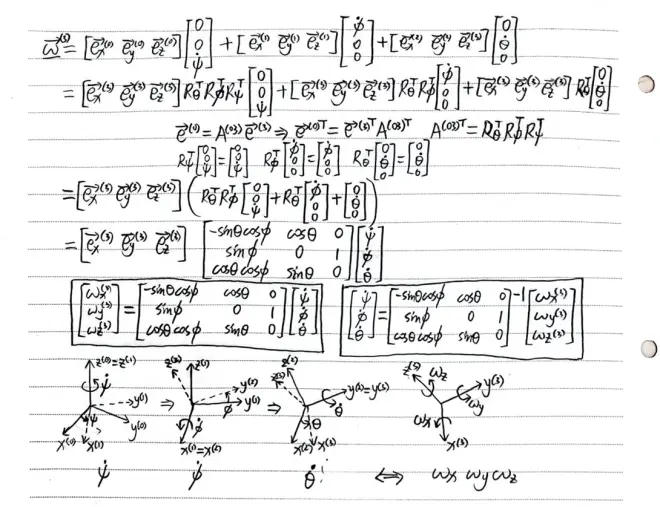 ω⃗⁽³⁾ = [e⃗x⁽⁰⁾ e⃗y⁽⁰⁾ e⃗z⁽⁰⁾] [0 0 ψ̇]ᵀ + [e⃗x⁽¹⁾ e⃗y⁽¹⁾ e⃗z⁽¹⁾] [φ̇ 0 0]ᵀ + [e⃗x⁽²⁾ e⃗y⁽²⁾ e⃗z⁽²⁾] [0 θ̇ 0]ᵀ
= [e⃗x⁽³⁾ e⃗y⁽³⁾ e⃗z⁽³⁾] RθᵀRφᵀRψᵀ [0 0 ψ̇]ᵀ + [e⃗x⁽³⁾ e⃗y⁽³⁾ e⃗z⁽³⁾] RθᵀRφᵀ [φ̇ 0 0]ᵀ + [e⃗x⁽³⁾ e⃗y⁽³⁾ e⃗z⁽³⁾] Rθᵀ [0 θ̇ 0]ᵀ
e⃗⁽⁰⁾ = A⁽⁰³⁾e⃗⁽³⁾ ⇒ e⃗⁽⁰⁾ᵀ = e⃗⁽³⁾ᵀA⁽⁰³⁾ᵀ A⁽⁰³⁾ᵀ = RθᵀRφᵀRψᵀ
Rψᵀ [0 0 ψ̇]ᵀ = [0 0 ψ̇]ᵀ Rφᵀ [φ̇ 0 0]ᵀ = [φ̇ 0 0]ᵀ Rθᵀ [0 θ̇ 0]ᵀ = [0 θ̇ 0]ᵀ
= [e⃗x⁽³⁾ e⃗y⁽³⁾ e⃗z⁽³⁾] (RθᵀRφᵀ [0 0 ψ̇]ᵀ + Rθᵀ [φ̇ 0 0]ᵀ + [0 θ̇ 0]ᵀ)
= [e⃗x⁽³⁾ e⃗y⁽³⁾ e⃗z⁽³⁾] [-sinθcosφ cosθ 0; sinφ 0 1; cosθcosφ sinθ 0] [ψ̇ φ̇ θ̇]ᵀ
[ωx⁽³⁾ ωy⁽³⁾ ωz⁽³⁾]ᵀ = [-sinθcosφ cosθ 0; sinφ 0 1; cosθcosφ sinθ 0] [ψ̇ φ̇ θ̇]ᵀ
[ψ̇ φ̇ θ̇]ᵀ = [-sinθcosφ cosθ 0; sinφ 0 1; cosθcosφ sinθ 0]⁻¹ [ωx⁽³⁾ ωy⁽³⁾ ωz⁽³⁾]ᵀ
z⁽⁰⁾=z⁽¹⁾ ψ̇ y⁽¹⁾ y⁽⁰⁾ ψ x⁽⁰⁾ x⁽¹⁾
⇒
z⁽²⁾ z⁽¹⁾ y⁽²⁾ y⁽¹⁾ φ φ̇ x⁽¹⁾=x⁽²⁾
⇒
z⁽²⁾ z⁽³⁾ y⁽²⁾=y⁽³⁾ θ̇ θ x⁽²⁾ x⁽³⁾
z⁽³⁾ ωz y⁽³⁾ ωy ωx x⁽³⁾
ψ̇ φ̇ θ̇ ⇔ ωx ωy ωz